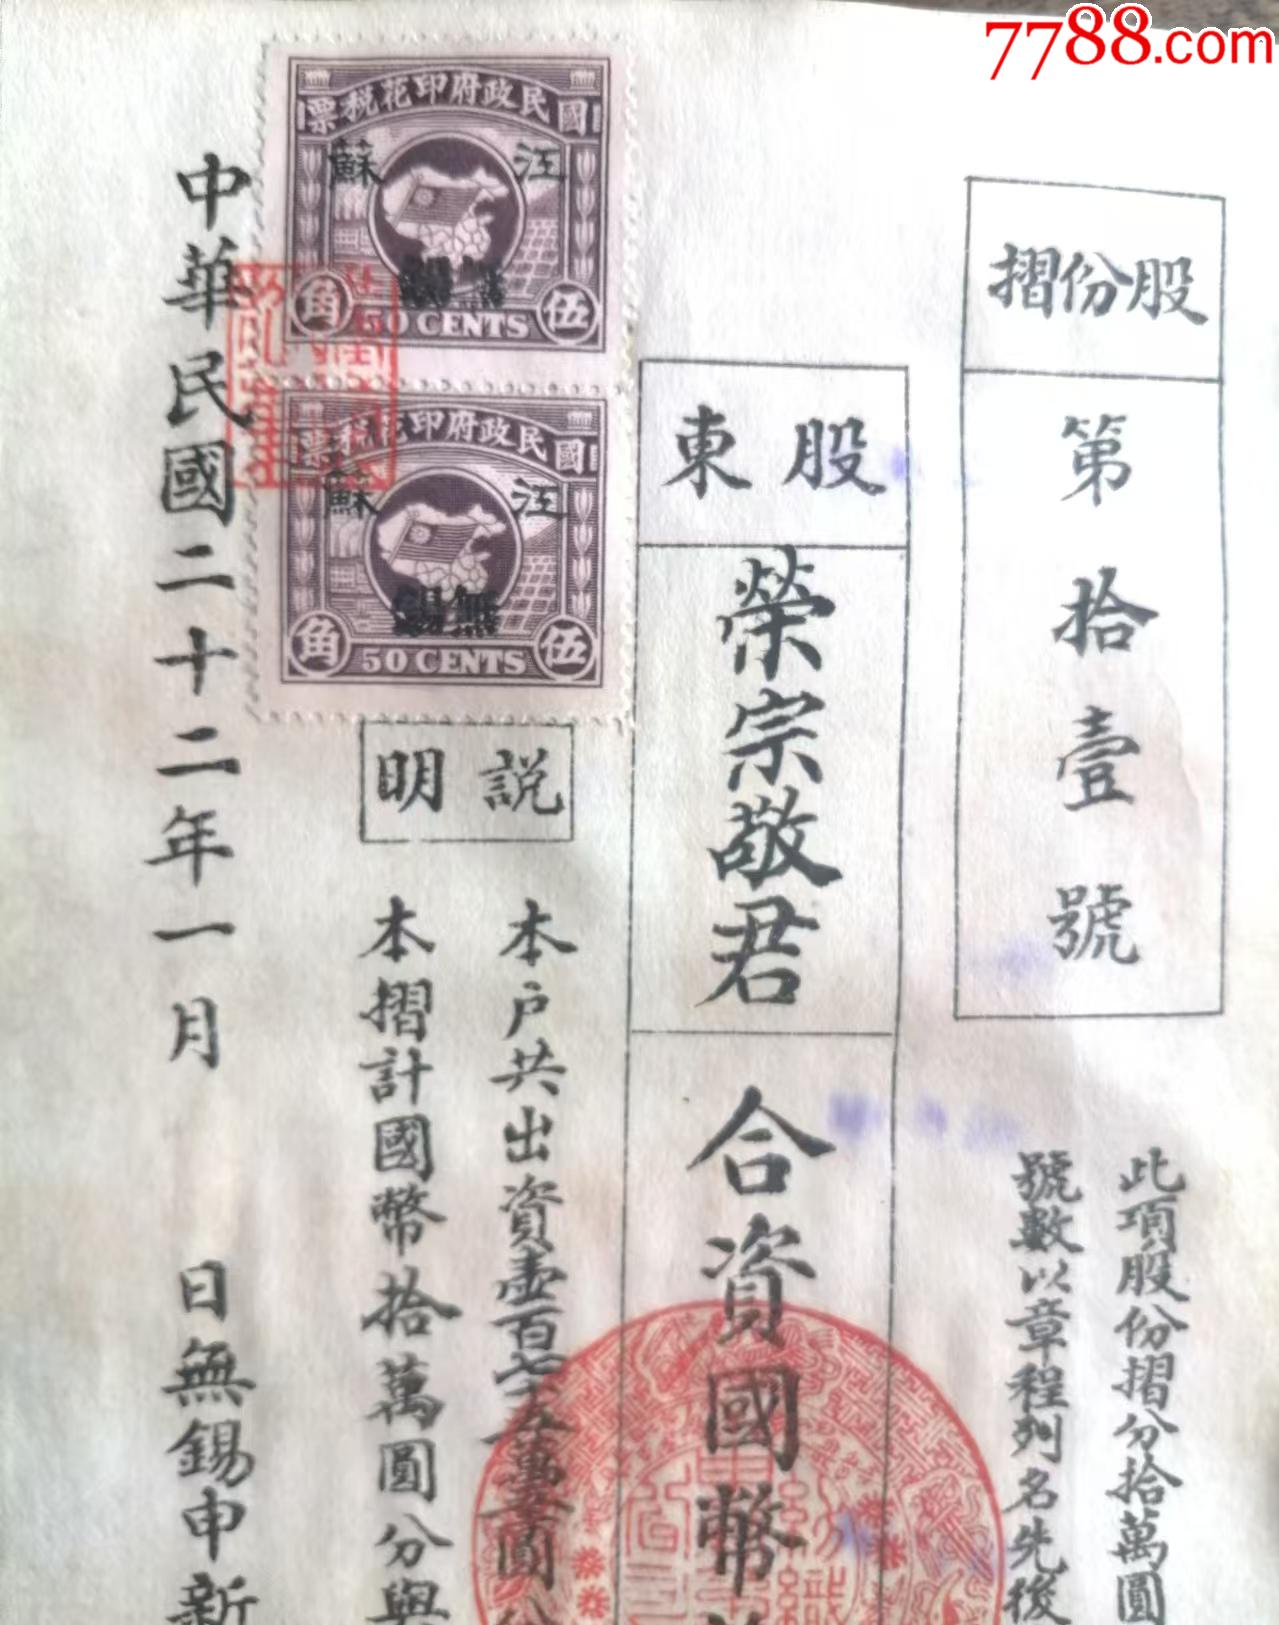 7788.com
股份摺
第拾壹號
此項股份摺分拾萬圓
號數以章程列名先後
股東
榮宗敬君
合資國幣
說明
本户共出資壹百七十五萬
本摺計國幣拾萬圓分與
國民政府印花稅票
江蘇
無錫
伍角
50 CENTS
國民政府印花稅票
江蘇
無錫
伍角
50 CENTS
中華民國二十二年一月 日無錫申新